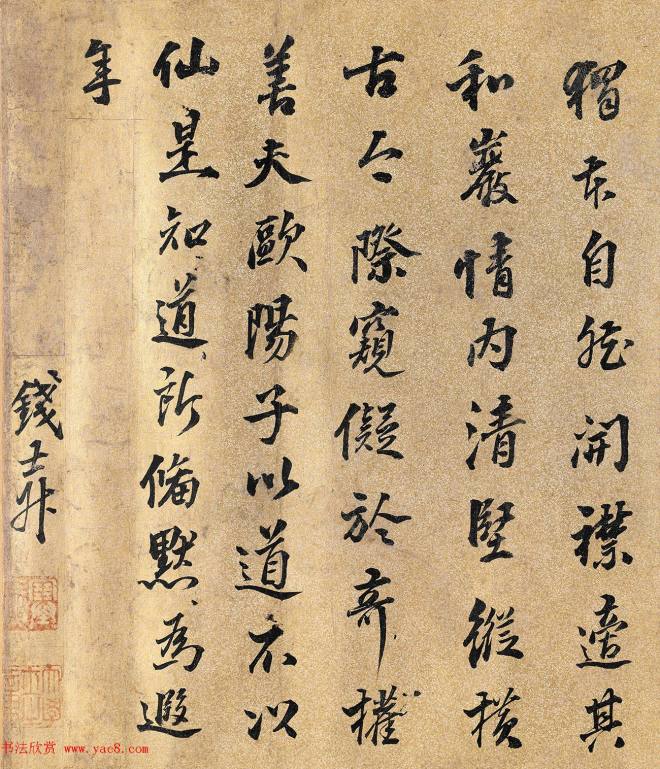 獨存自然開襟適其
和巖情内清堅縱橫
古今際窺儗於奇權
善夫歐陽子以道不以
仙是知道所備默為遐
年
錢士升
书法欣赏 www.yac8.com